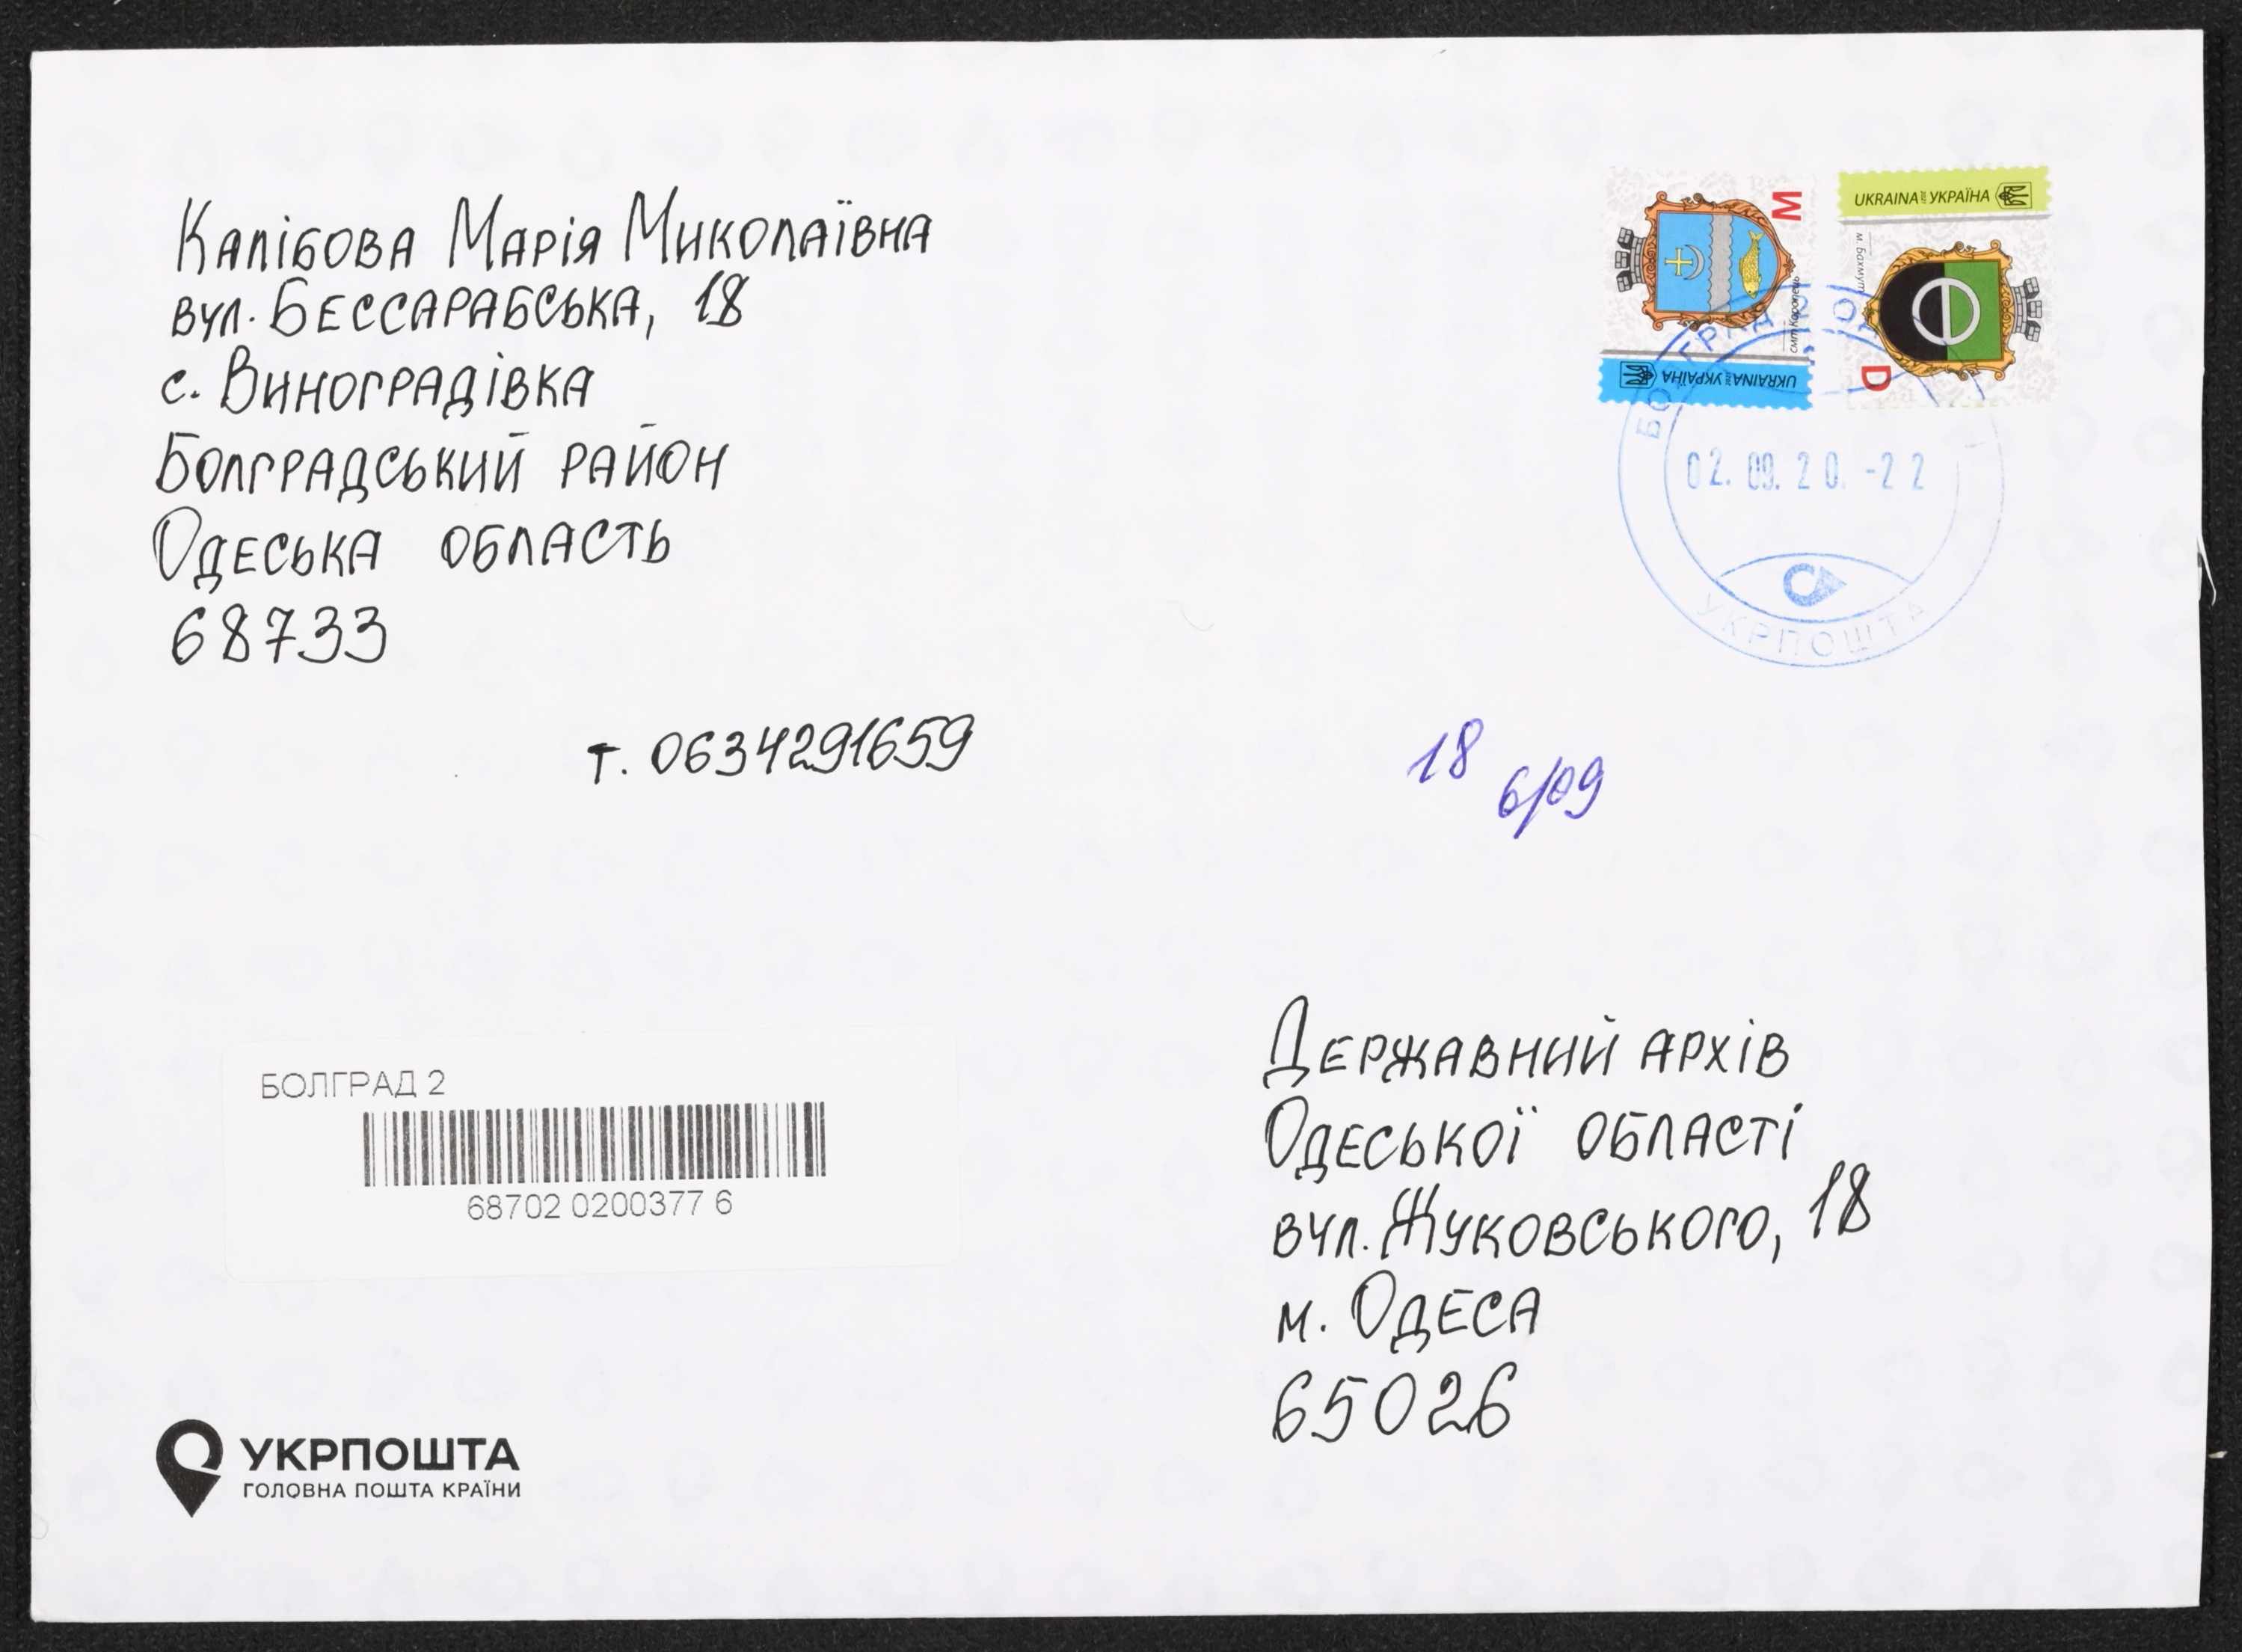 Капібова Марія Миколаївна
вул. Бессарабська, 18
с. Виноградівка
Болградський район
Одеська область
68733
т. 0634291659
UKRAINA УКРАЇНА
м. Бахмут
D
M
смт Коропець
UKRAINA УКРАЇНА
02.09.20.-22
УКРПОШТА
18 6/09
БОЛГРАД 2
68702 0200377 6
Державний архів
Одеської області
вул. Жуковського, 18
м. Одеса
65026
УКРПОШТА
ГОЛОВНА ПОШТА КРАЇНИ